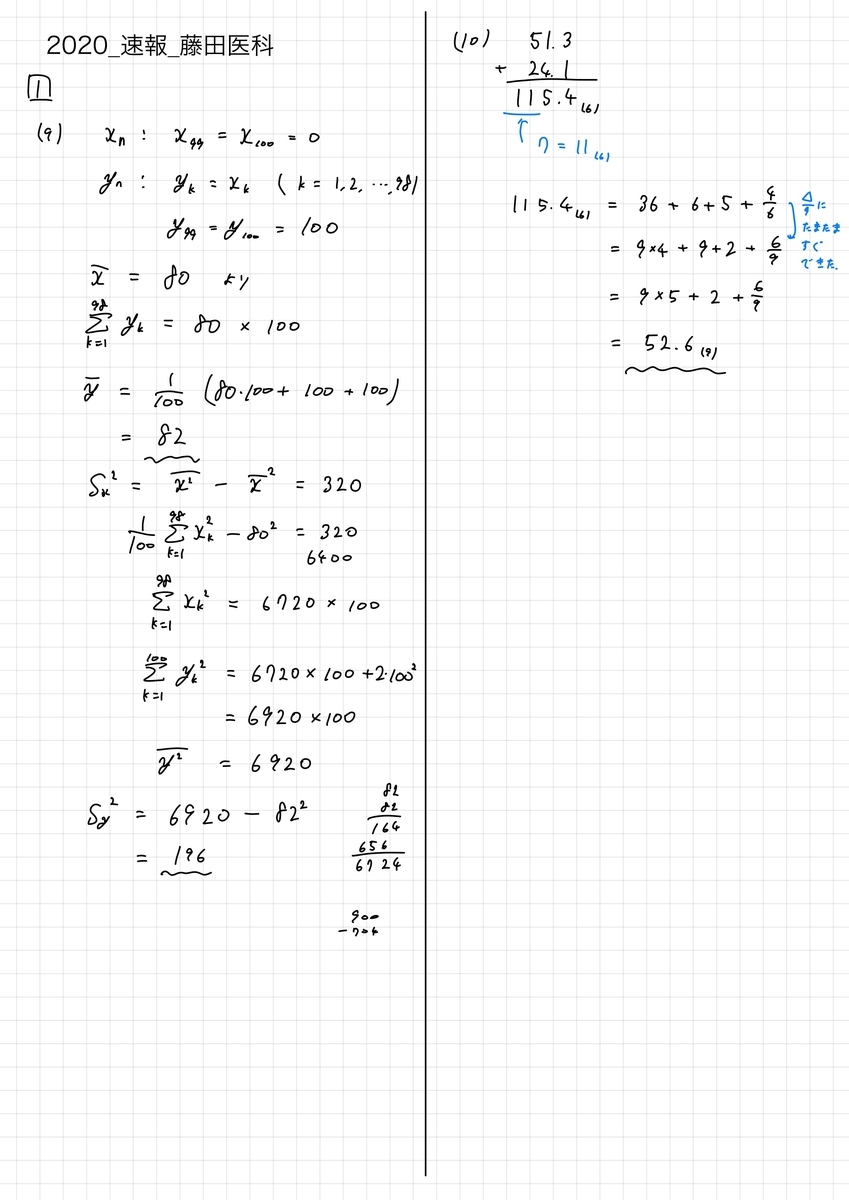 2020_速報_藤田医科
1
(9) xₙ : x₉₉ = x₁₀₀ = 0
yₙ : yₖ = xₖ ( k = 1, 2, ⋯, 98)
y₉₉ = y₁₀₀ = 100
x̄ = 80 より
∑_{k=1}^{98} yₖ = 80 × 100
ȳ = 1/100 (80·100 + 100 + 100)
= 82
Sₓ² = \overline{x²} - x̄² = 320
1/100 ∑_{k=1}^{98} xₖ² - 80² = 320
6400
∑_{k=1}^{98} xₖ² = 6720 × 100
∑_{k=1}^{100} yₖ² = 6720 × 100 + 2·100²
= 6920 × 100
\overline{y²} = 6920
S_y² = 6920 - 82²
= 196
82
82
164
656
6724
900
- 704
(10) 51.3
+ 24.1
115.4₍₆₎
↑ 7 = 11₍₆₎
115.4₍₆₎ = 36 + 6 + 5 + 4/6
= 9×4 + 9 + 2 + 6/9
= 9×5 + 2 + 6/9
= 52.6₍₉₎
△/9 に
たまたま
すぐ
できた.